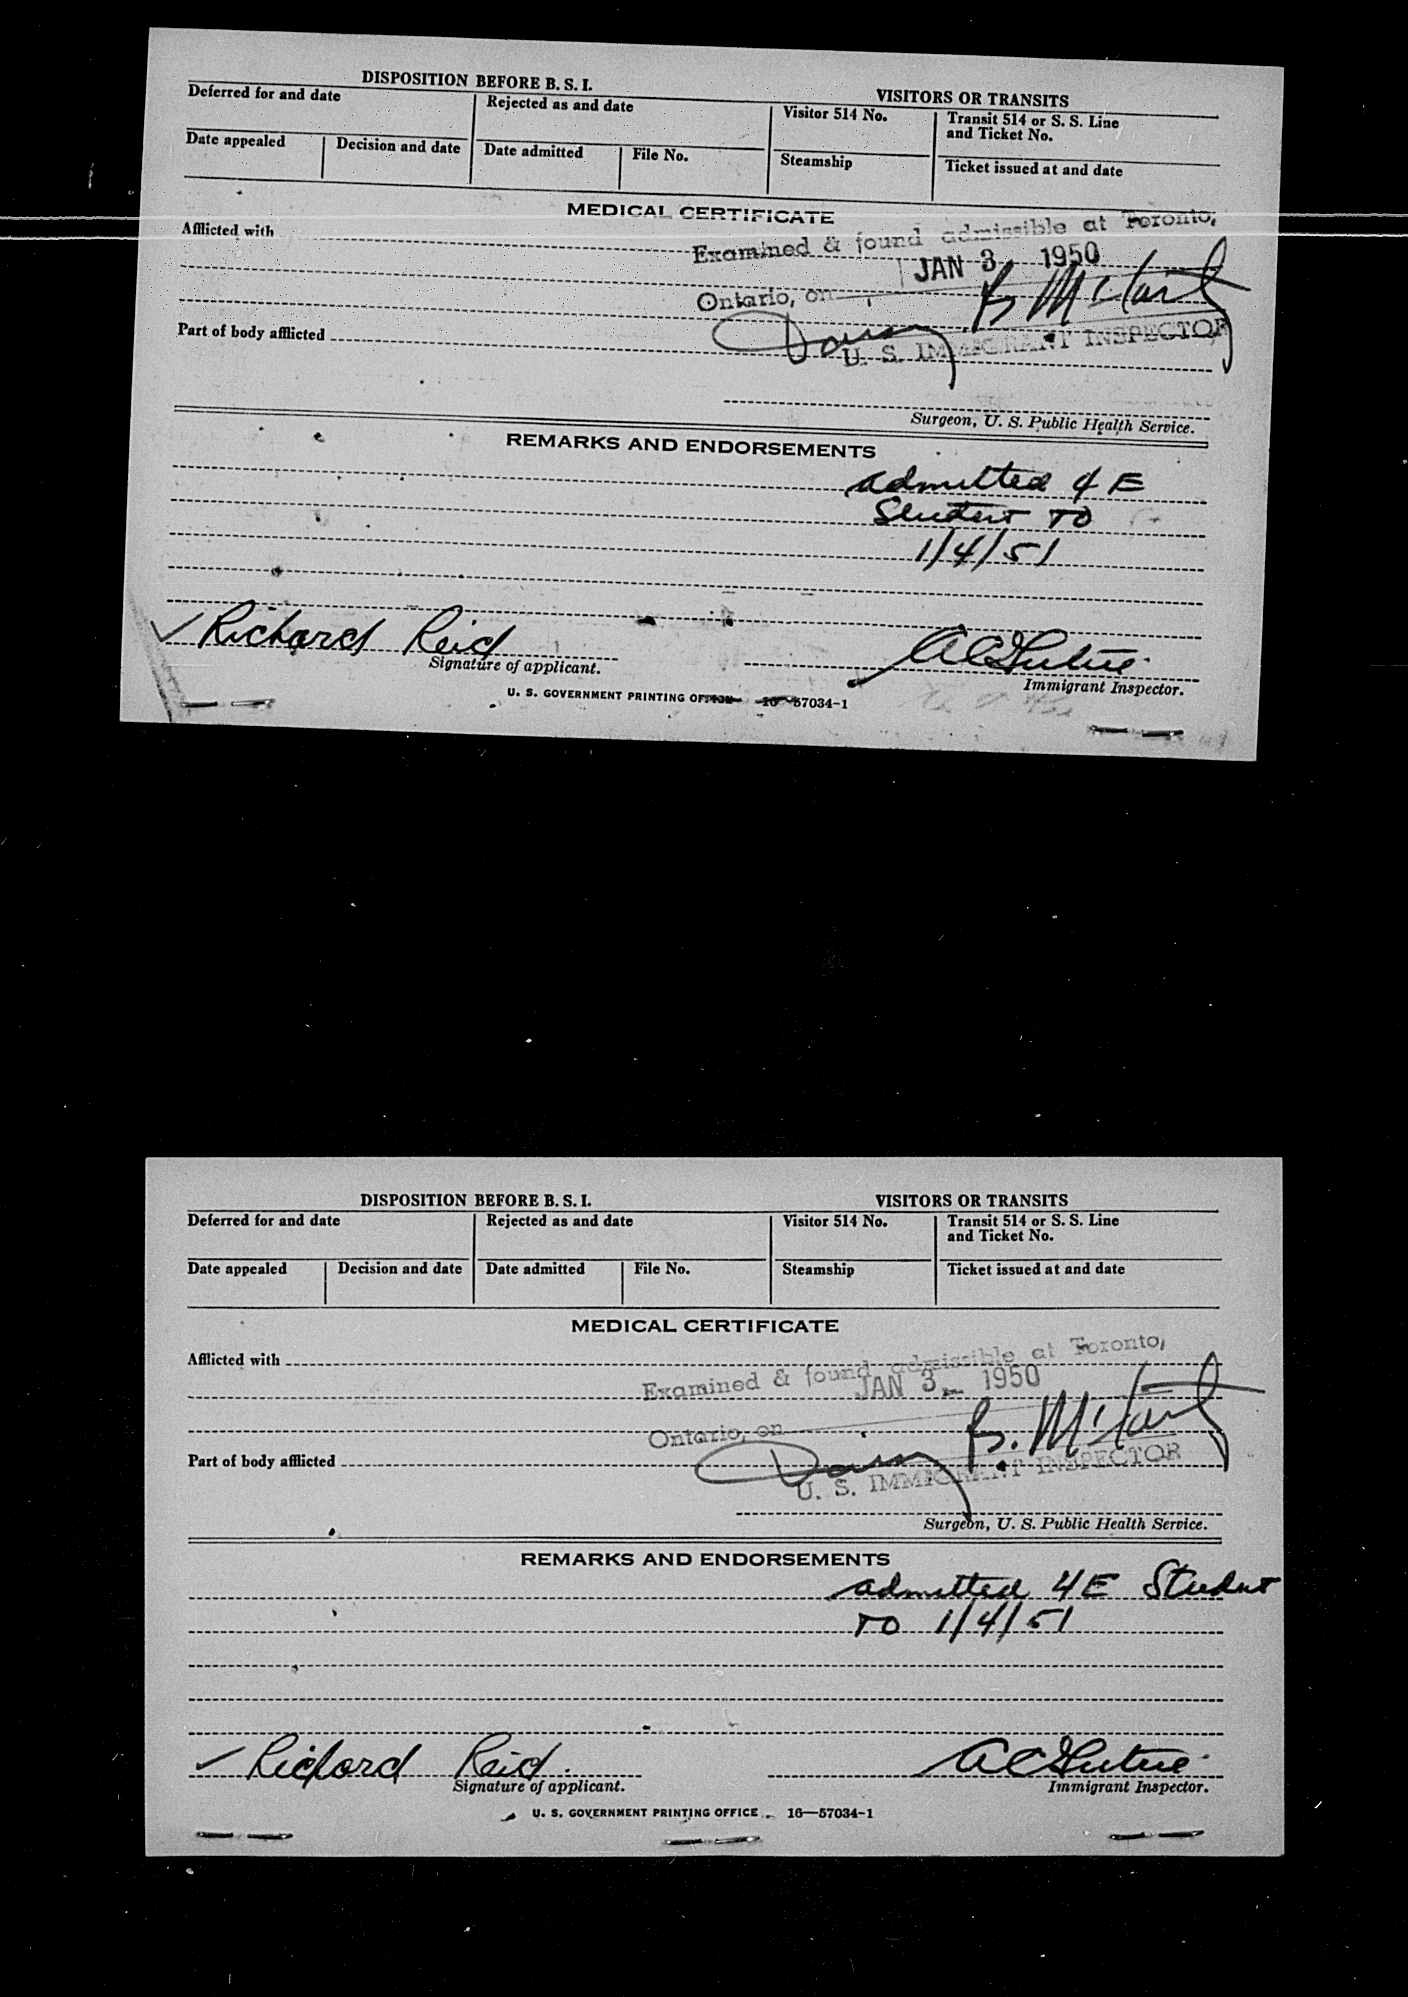 DISPOSITION BEFORE B. S. I.
VISITORS OR TRANSITS
Deferred for and date
Rejected as and date
Visitor 514 No.
Transit 514 or S. S. Line
and Ticket No.
Date appealed
Decision and date
Date admitted
File No.
Steamship
Ticket issued at and date
MEDICAL CERTIFICATE
Afflicted with
Examined & found admissible at Toronto,
JAN 3 1950
Ontario, on
B. McCarty
Part of body afflicted
U. S. IMMIGRANT INSPECTOR
Surgeon, U. S. Public Health Service.
REMARKS AND ENDORSEMENTS
admitted 4 E
Student TO
1/4/51
Richard Reid
Signature of applicant.
Immigrant Inspector.
U. S. GOVERNMENT PRINTING OFFICE 16—57034-1
DISPOSITION BEFORE B. S. I.
VISITORS OR TRANSITS
Deferred for and date
Rejected as and date
Visitor 514 No.
Transit 514 or S. S. Line
and Ticket No.
Date appealed
Decision and date
Date admitted
File No.
Steamship
Ticket issued at and date
MEDICAL CERTIFICATE
Afflicted with
Examined & found admissible at Toronto,
JAN 3 1950
Ontario, on
B. McCarty
Part of body afflicted
U. S. IMMIGRANT INSPECTOR
Surgeon, U. S. Public Health Service.
REMARKS AND ENDORSEMENTS
admitted 4E Student
TO 1/4/51
Richard Reid.
Signature of applicant.
Immigrant Inspector.
U. S. GOVERNMENT PRINTING OFFICE 16—57034-1